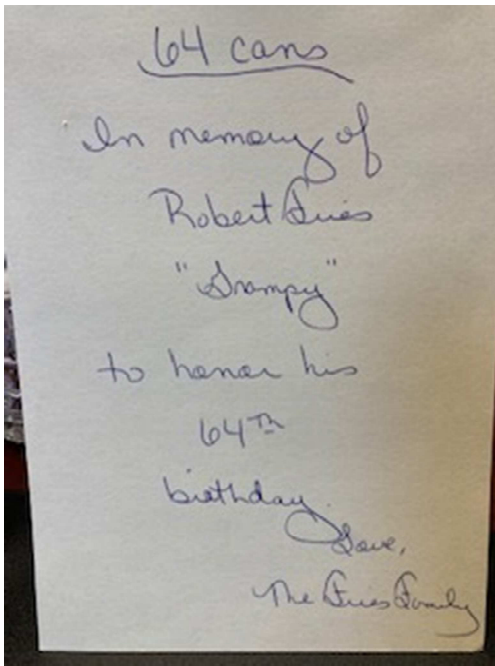 64 cans
In memory of
Robert Fries
"Grampy"
to honor his
64TH
birthday.
Love,
The Fries Family